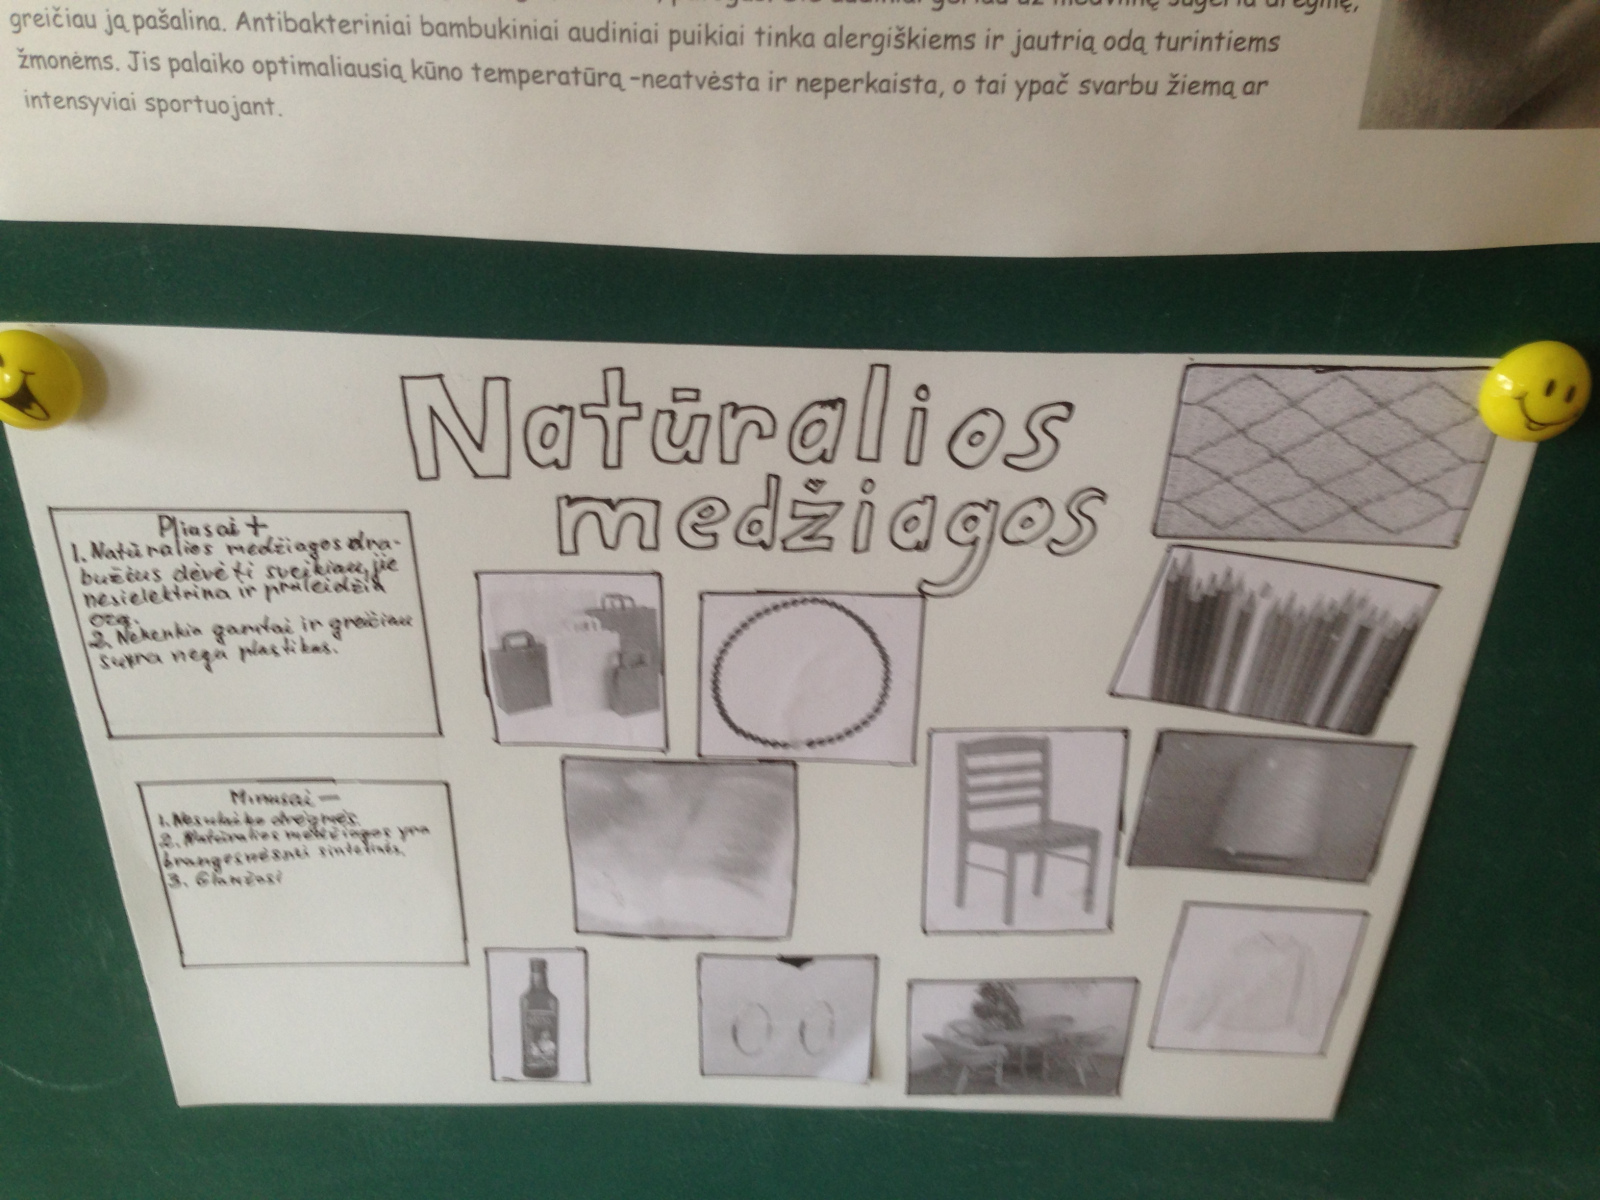 greičiau ją pašalina. Antibakteriniai bambukiniai audiniai puikiai tinka alergiškiems ir jautrią odą turintiems
žmonėms. Jis palaiko optimaliausią kūno temperatūrą -neatvėsta ir neperkaista, o tai ypač svarbu žiemą ar
intensyviai sportuojant.
Natūralios
medžiagos
Pliusai +
1. Natūralios medžiagos dra-
bužius dėvėti sveikiau, jie
nesielektrina ir praleidžia
orą.
2. Nekenkia gamtai ir greičiau
supra nega plastikas.
Minusai -
1. Nesulaiko drėgmės.
2. Natūralios medžiagos yra
brangesnės sintetinės.
3. Glamžosi